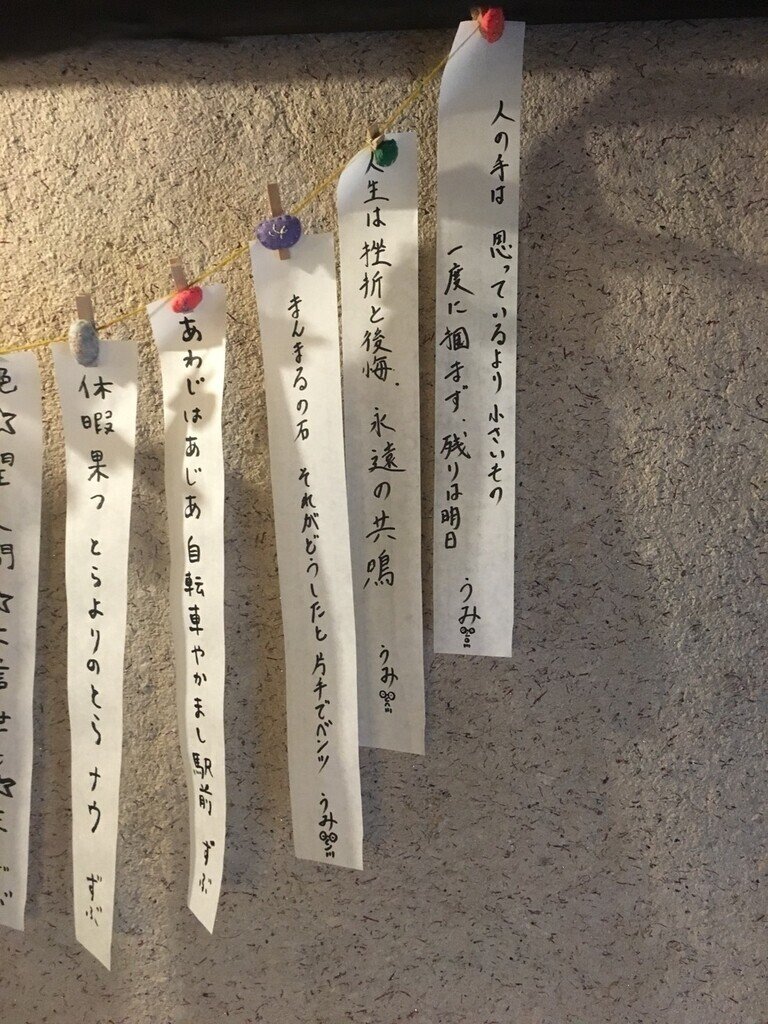 人の手は 思っているより 小さいもの
一度に掴まず、残りは明日
うみ
人生は 挫折と後悔、永遠の共鳴
うみ
まんまるの石 それがどうしたと 片手でベンツ
うみ
あわじはあじあ 自転車やかまし 駅前 ずぶ
休暇 果つ とらよりのとら ナウ ずぶ